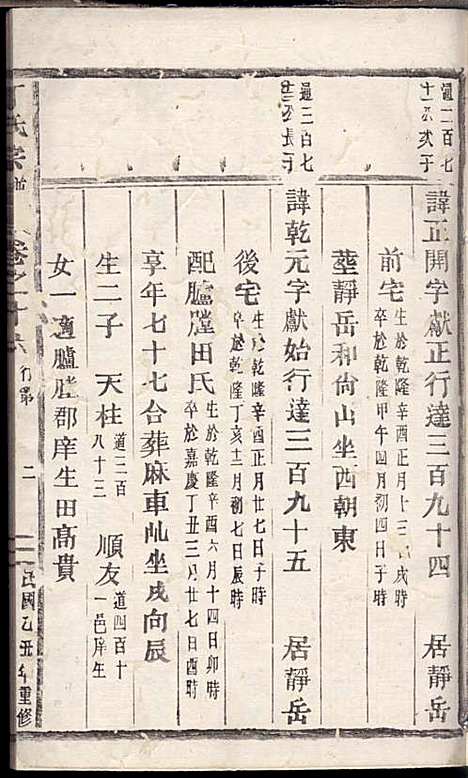 遠二百七
十公次子
諱正開字獻正行達三百九十四　居靜岳
前宅　生於乾隆辛酉正月十三　戌時
卒於乾隆甲午四月初四日子時
塟靜岳和尙山坐西朝東
遠三百七
公長子
諱乾元字獻始行達三百九十五　居靜岳
後宅　生於乾隆辛酉正月廿七日子時
卒於乾隆丁亥十二月初七日辰時
配臚膛田氏　生於乾隆辛酉六月十四日卯時
卒於嘉慶丁丑三月廿七日酉時
享年七十七合葬麻車乢坐戌向辰
生二子　天柱　道二百
八十三　順友　道四百十
一邑庠生
女一適臚膛郡庠生田高貴
丁氏宗譜　卷之十六　行第　二　民國乙丑年重修